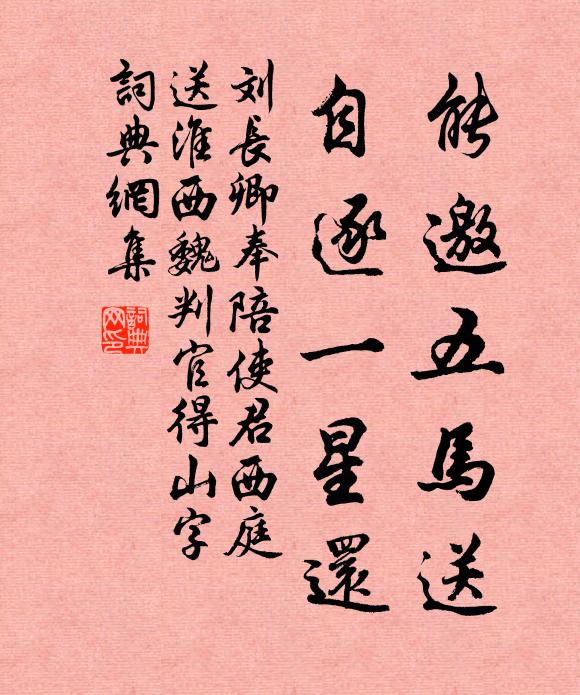 能邀五馬送
自逐一星還
刘長卿奉陪使君西庭
送淮西魏判官得山字
詞典網集
詞典
网印